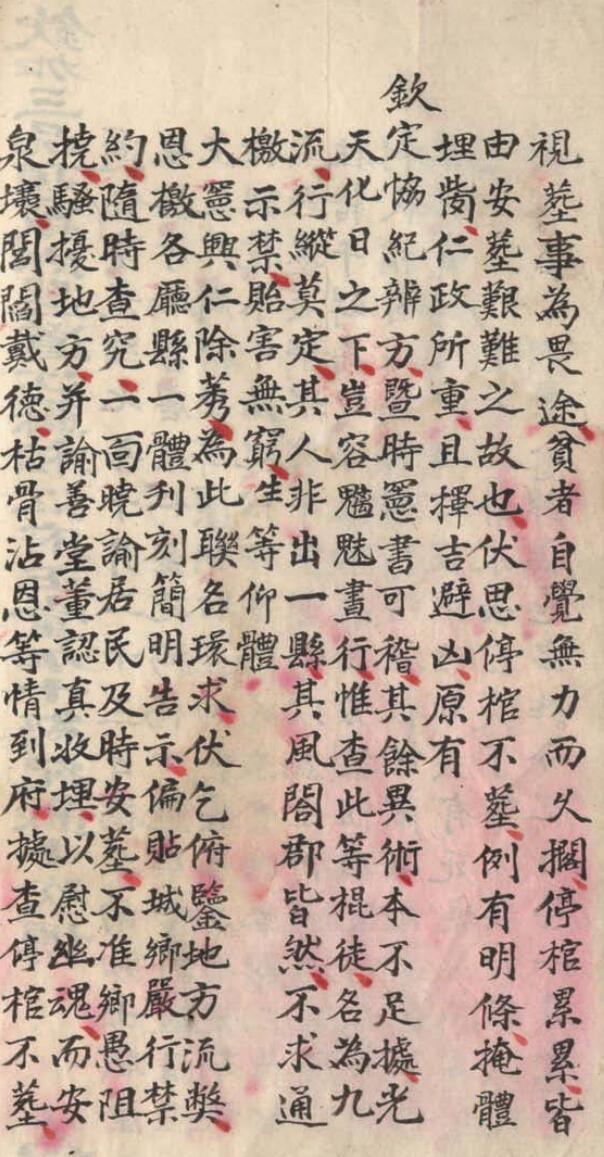 視塟事為畏途貧者自覺無力而久擱停棺累累皆
由安塟艱難之故也伏思停棺不塟例有明條掩體
埋胔仁政所重且擇吉避凶原有
欽定協紀辨方暨時憲書可稽其餘異術本不足據光
天化日之下豈容魑魅晝行惟查此等棍徒各為九
流行縱莫定其人非出一縣其風閤郡皆然不求通
檄示禁貽害無窮生等仰體
大憲興仁除莠為此聯名環求伏乞俯鑒地方流獘
恩檄各廳縣一體刋刻簡明告示偏貼城鄉嚴行禁
約隨時查究一面曉諭居民及時安塟不准鄉愚阻
撓騷擾地方并諭善堂董認真收埋以慰幽魂而安
泉壤閭閻戴德枯骨沾恩等情到府據查停棺不塟